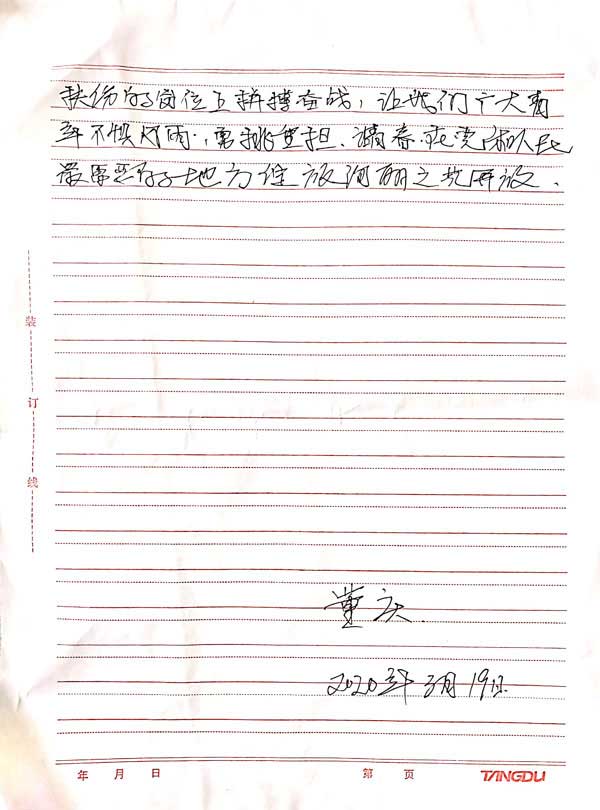 扶伤的岗位上拼搏奋战，让我们广大青
年不惧风雨，勇挑重担，让青春在党和人民
最需要的地方绽放绚丽之花
董庆
2020年3月19日
装
订
线
年 月 日 第 页 TANGDU